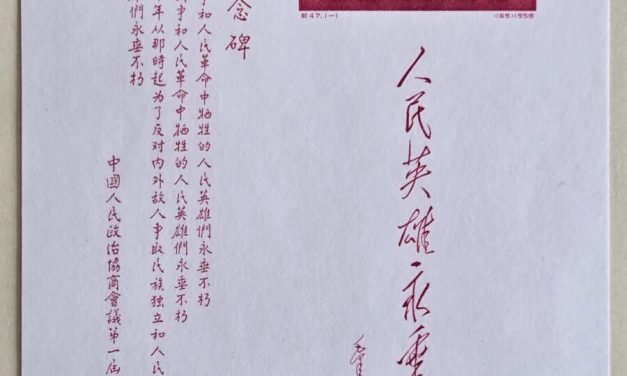 紀47.(一)
(165)1958
人民英雄永垂
念碑
争和人民革命中牺牲的人民英雄們永垂不朽
争和人民革命中牺牲的人民英雄們永垂不朽
年从那時起为了反对内外敌人争取民族独立和人民
們永垂不朽
中國人民政治協商會議第一屆